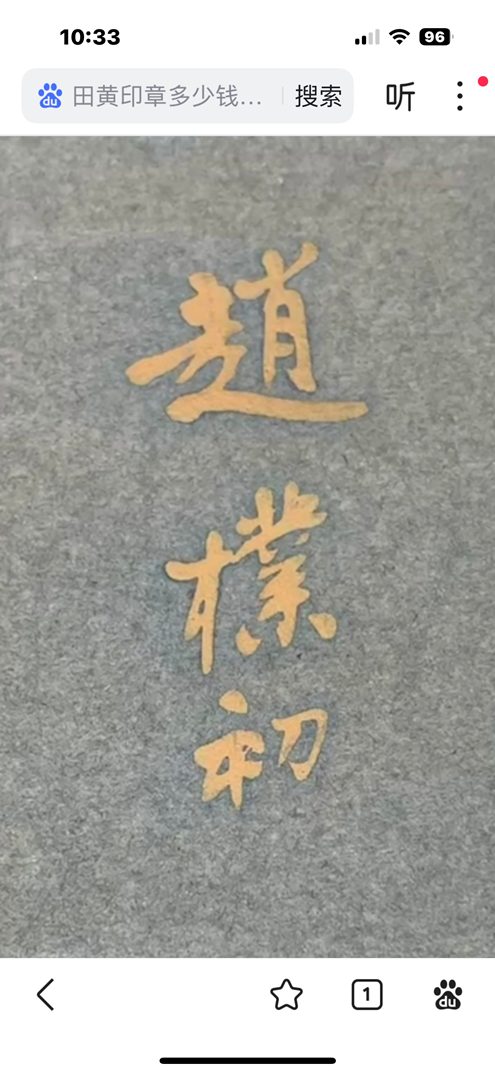 10:33
96
du 田黄印章多少钱... 搜索 听
趙
樸
初
1
du